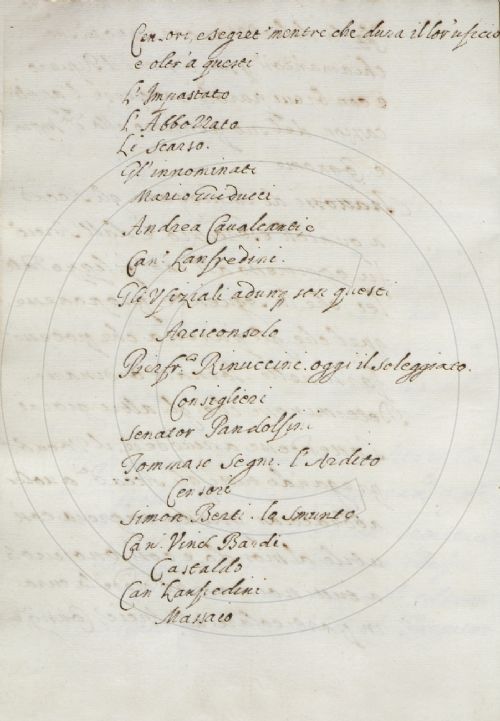 Censori, e segret' mentre che dura il lor' ufficio
e oltr' a questi
L' Impastato
L' Abbozzato
Lo scarso.
Gl' innominati
Mario Guiducci
Andrea Cavalcanti e
Can.co Lanfredini.
Gli Ufiziali adunq son questi
Arciconsolo
Pierfr.co Rinuccini. oggi il soleggiato.
Consiglieri
Senator Pandolfini
Tommaso Segni. l'Ardito
Censori
Simon Berti. lo Smunto
Can.co Vinc Bardi.
Castaldo
Can.co Lanfredini
Massaio